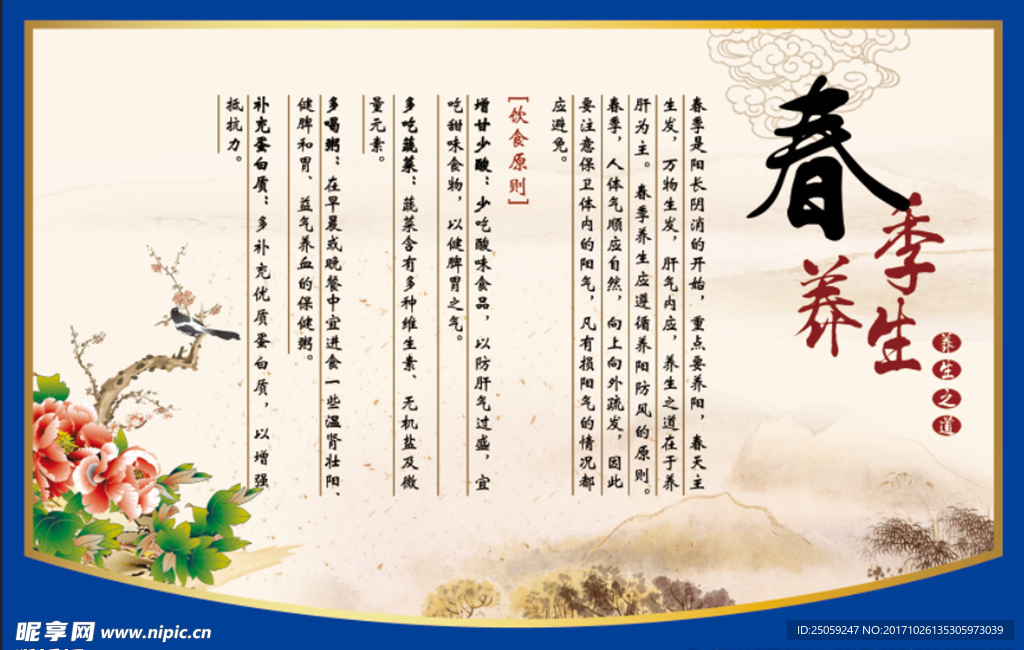 春
季
养
生
养生之道
春季是阳长阴消的开始，重点要养阳，春天主
生发，万物生发，肝气内应，养生之道在于养
肝为主。春季养生应遵循养阳防风的原则。
春季，人体气顺应自然，向上向外疏发，因此
要注意保卫体内的阳气，凡有损阳气的情况都
应避免。
[饮食原则]
增甘少酸：少吃酸味食品，以防肝气过盛，宜
吃甜味食物，以健脾胃之气。
多吃蔬菜：蔬菜含有多种维生素、无机盐及微
量元素。
多喝粥：在早晨或晚餐中宜进食一些温肾壮阳、
健脾和胃、益气养血的保健粥。
补充蛋白质：多补充优质蛋白质，以增强
抵抗力。
昵享网 www.nipic.cn
ID:25059247 NO:20171026135305973039